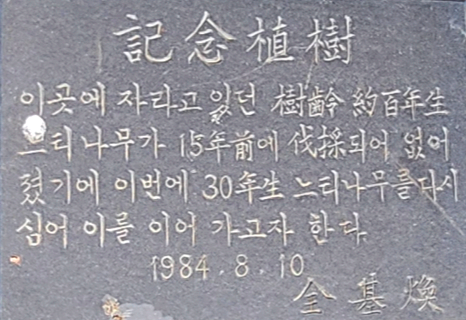 記念植樹
이곳에 자라고 있던 樹齡 約百年生
느티나무가 15年前에 伐採되어 없어
졌기에 이번에 30年生 느티나무를 다시
심어 이를 이어 가고자 한다.
1984. 8. 10
全基煥